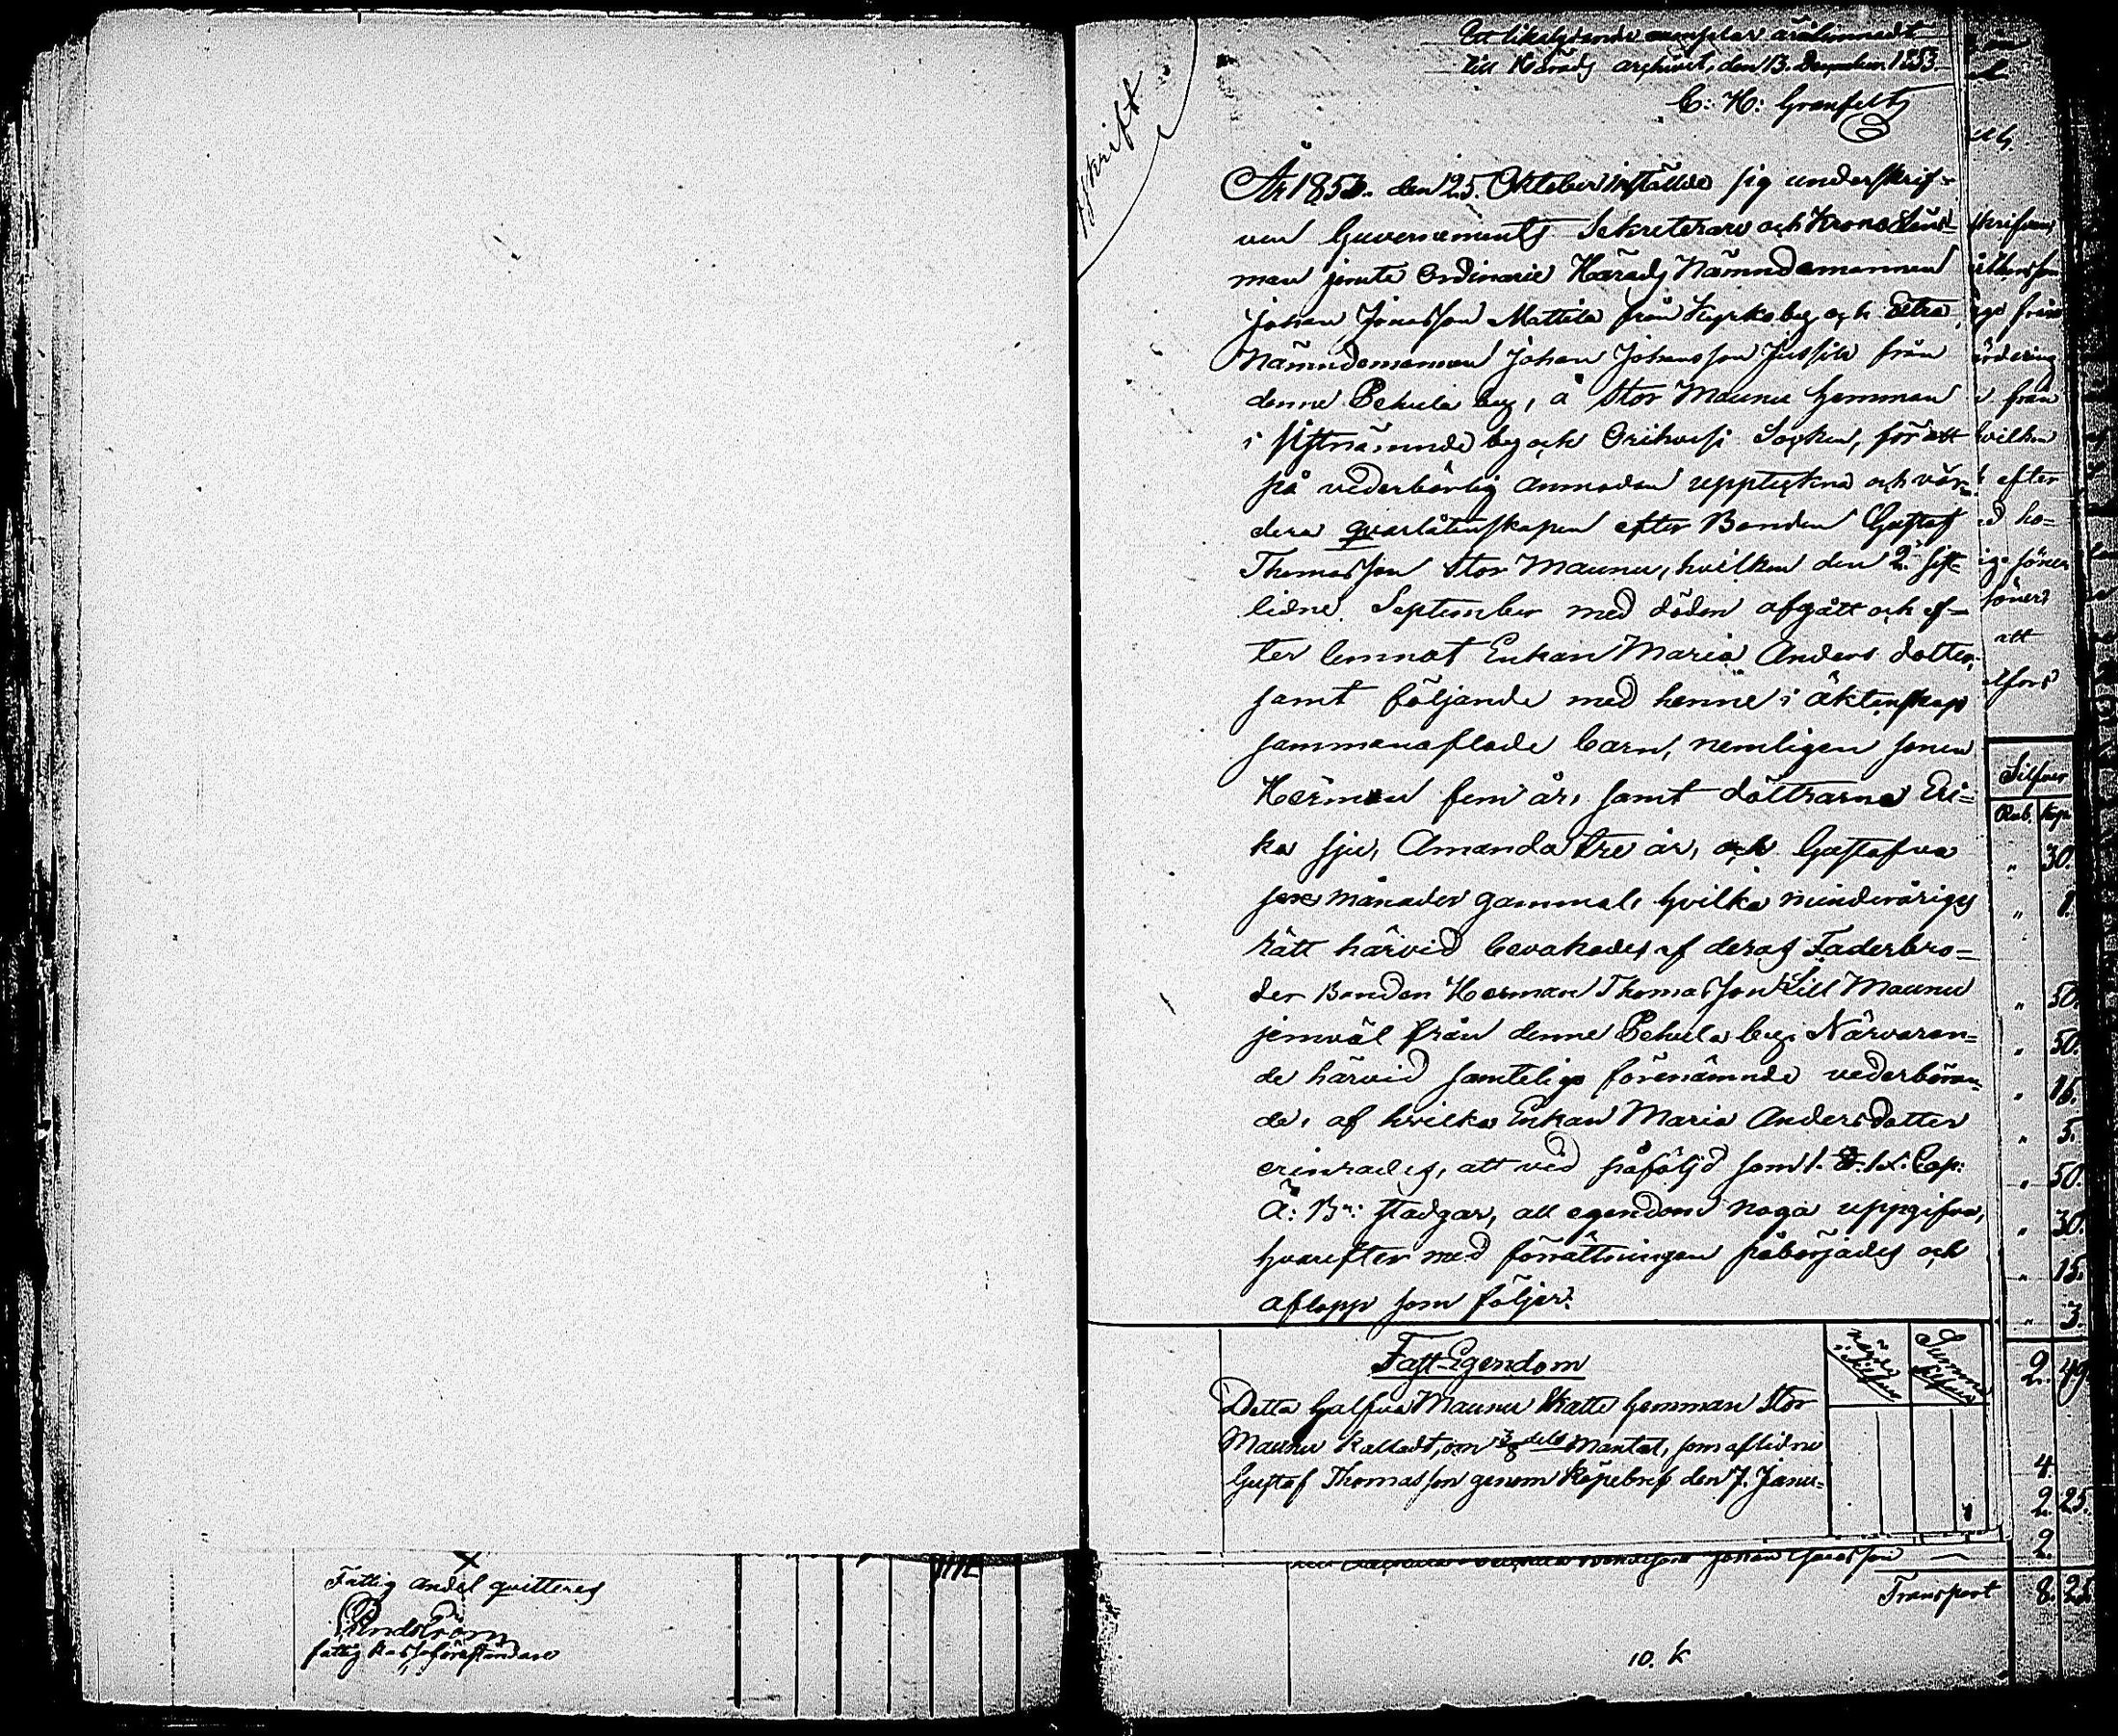 Ett likalydande exemplar är inlemnadt
till Härads archivet, den 13. December 1853
C: H: Granfelt
Afskrift
År 1853. den 25. Oktober instälde sig underskrif-
ven Guvernements Sekreterare och Krono Läns-
man jemte Ordinarie Härads Nämndemannen
Johan Jonasson Mattila från Kyrkoby och Extra
Nämndemannen Johan Johansson Jussila från
denne Pehula by, å Stor Maunu hemman
i sistnämnde by och Orihvesi Socken, för att
på vederbörlig anmodan uppteckna och vär-
dera qvarlåtenskapen efter Bonden Gustaf
Thomasson Stor Maunu, hvilken den 2. sist-
lidne September med döden afgått och ef-
ter lemnat Enkan Maria Anders dotter,
samt följande med henne i äktenskap
sammanaflade barn, nemligen sonen
Herman fem år, samt döttrarne Eri-
ka sju, Amanda tre år, och Gustafva
sex månader gammal, hvilka minderårigas
rätt härvid bevakades af deras Faderbro-
der Bonden Herman Thomasson Lill Maunu
jemväl från denne Pehula by. Närvaran-
de härvid samtelige förenämnde vederböran-
de, af hvilka Enkan Maria Andersdotter
erinrades, att vid påföljd som 1. §. 1x. Cap:
Ä: B: stadgar, all egendom noga uppgifva,
hvarefter med förrättningen påbörjades och
aflopp som följer:
Fast Egendom
Summa
Silfver
Detta halfva Maunu Skatte hemman Stor
Maunu kalladt, om 3/8 dels Mantal, som aflidne
Gustaf Thomasson genom köpebref den 7. Janu-
Johan
Transport 8. 25
10. k
skrifven
från
värdering
från
hvilken
efter
ho-
söner
söner
att
Silfver
Rub. Kop
" 30.
" 1.
" 50.
" 50.
" 15.
" 5.
" 50.
" 30.
" 15.
" 3.
2. 49
4.
2. 25.
2.
Fattig andel qvitteras
Lindström
fattig kasseförestandare